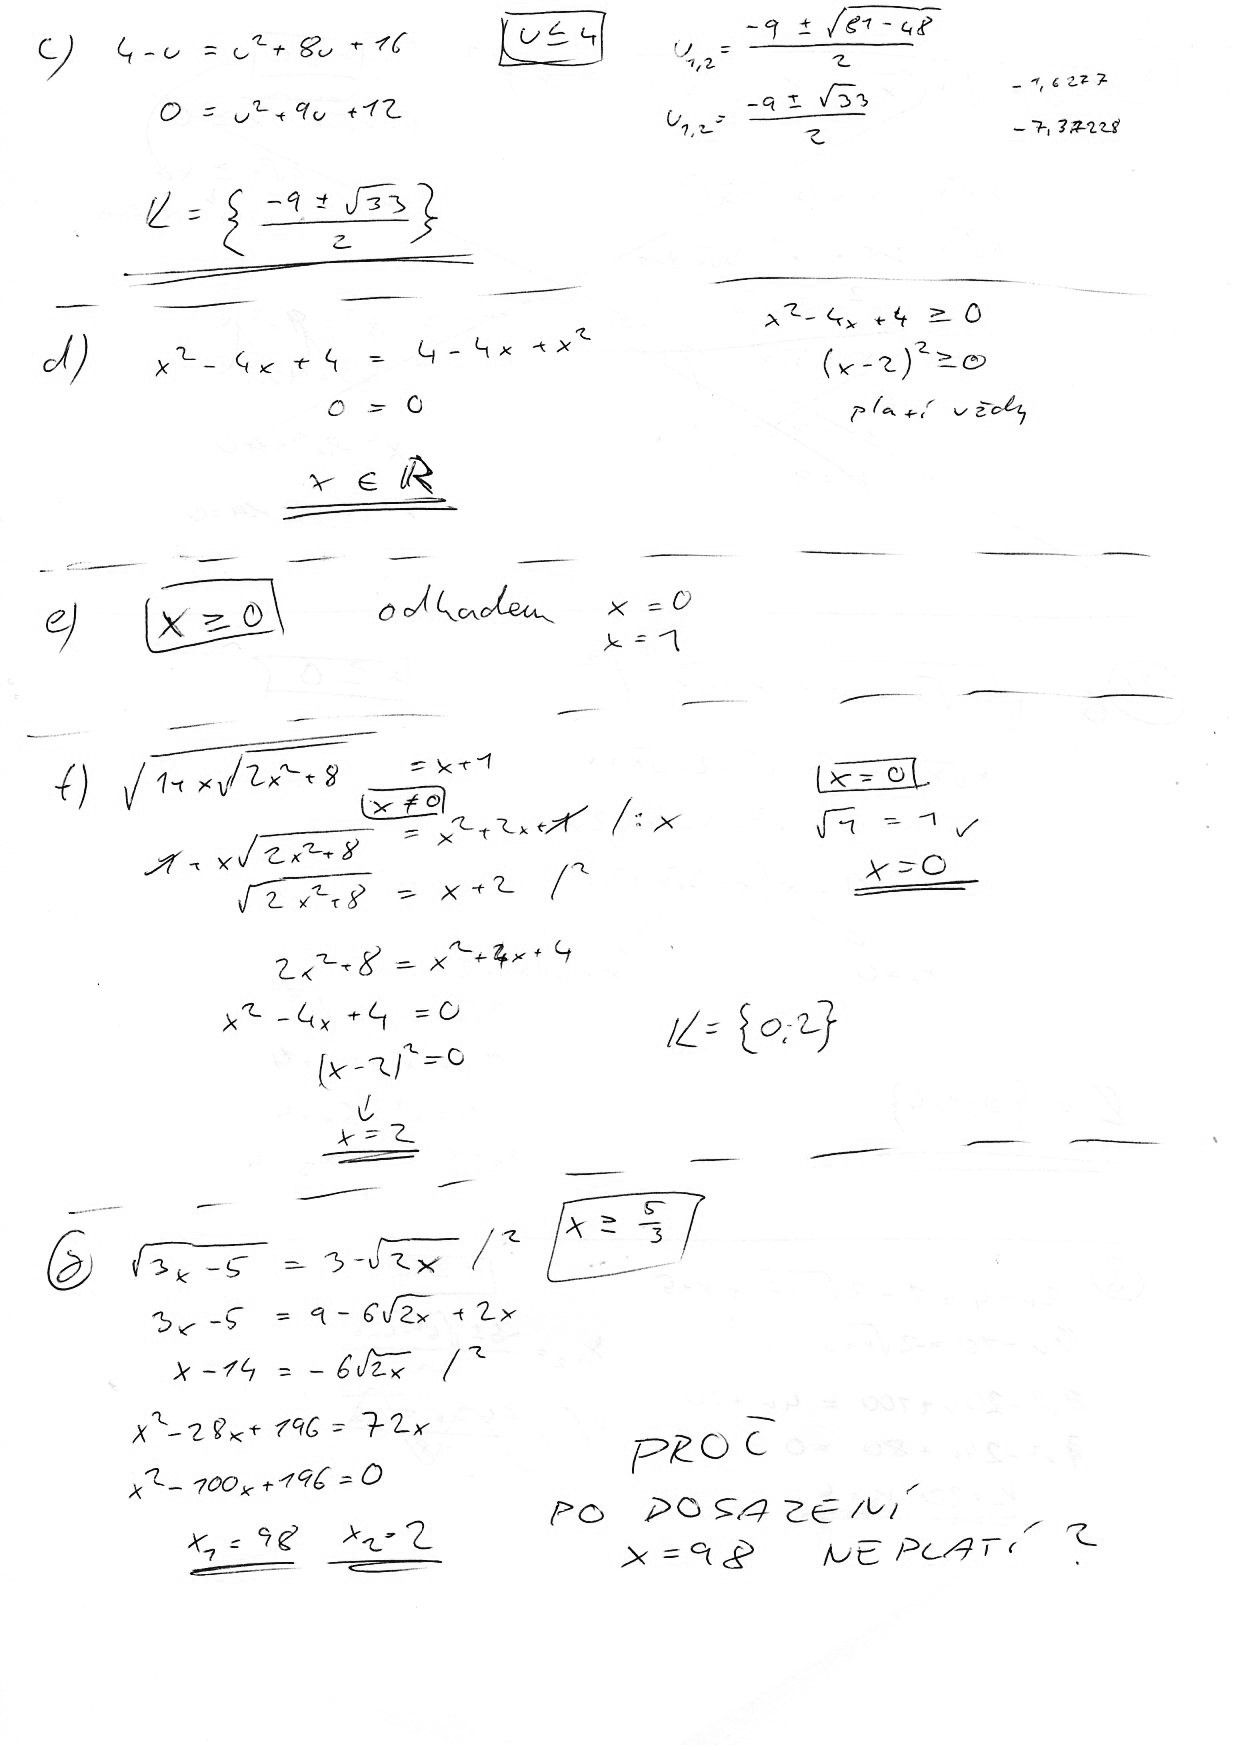 c) 4-u = u²+8u+16
u ≤ 4
u₁,₂ = (-9 ± √(81-48))/2
0 = u²+9u+12
u₁,₂ = (-9 ± √33)/2
-1,6277
-7,37228
K = { (-9 ± √33)/2 }
d) x²-4x+4 = 4-4x+x²
0 = 0
x ∈ ℝ
x²-4x+4 ≥ 0
(x-2)² ≥ 0
platí vždy
e) x ≥ 0 odhadem x = 0
x = 1
f) √(1+x√(2x²+8)) = x+1
x ≠ 0
1+x√(2x²+8) = x²+2x+1 /:x
√(2x²+8) = x+2 /²
2x²+8 = x²+4x+4
x²-4x+4 = 0
(x-2)² = 0
↓
x = 2
x = 0
√1 = 1 ✓
x = 0
K = {0;2}
g) √(3x-5) = 3-√(2x) /²
x ≥ 5/3
3x-5 = 9-6√(2x)+2x
x-14 = -6√(2x) /²
x²-28x+196 = 72x
x²-100x+196 = 0
x₁ = 98 x₂ = 2
PROČ
PO DOSAZENÍ
x = 98 NEPLATÍ ?